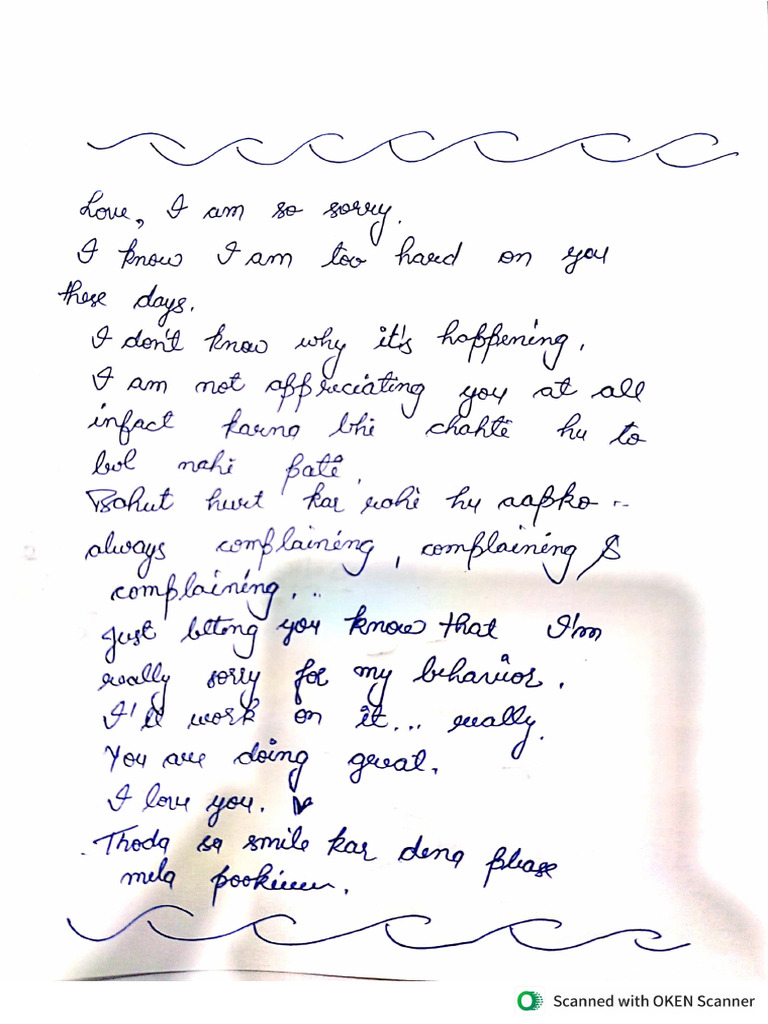 Love, I am so sorry.
I know I am too hard on you
these days.
I don't know why it's happening.
I am not appreciating you at all
infact karna bhi chahti hu to
bol nahi pati.
Bahut hurt kar rahi hu aapko ..
always complaining, complaining &
complaining...
Just letting you know that I'm
really sorry for my behavior.
I'll work on it... really.
You are doing great.
I love you.
Thoda sa smile kar dena please
mela pookieee.
Scanned with OKEN Scanner